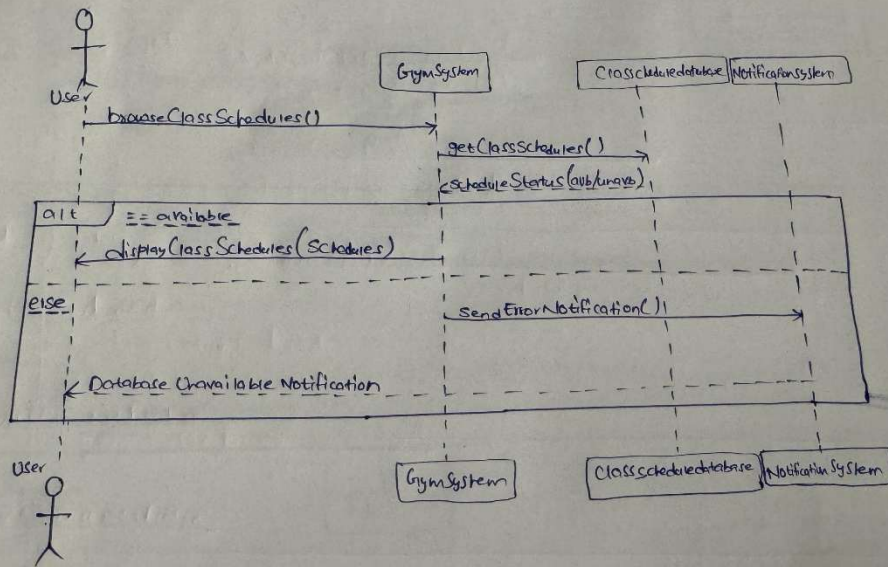 User
GymSystem
Classcheduledatabase
NotificationSystem
browseClassSchedules()
getClassSchedules()
scheduleStatus(avb/unavb)
alt
== available
displayClassSchedules(Schedules)
else
sendErrorNotification()
Database Unavailable Notification
User
GymSystem
Classscheduledatabase
NotificationSystem